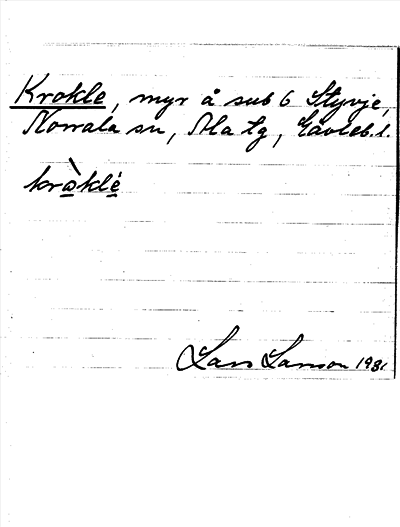 Krokle, myr å sub 6 Styvje,
Norrala sn, Ala tg, Gävleb.l.
kròklè
Lars Larsson 1931